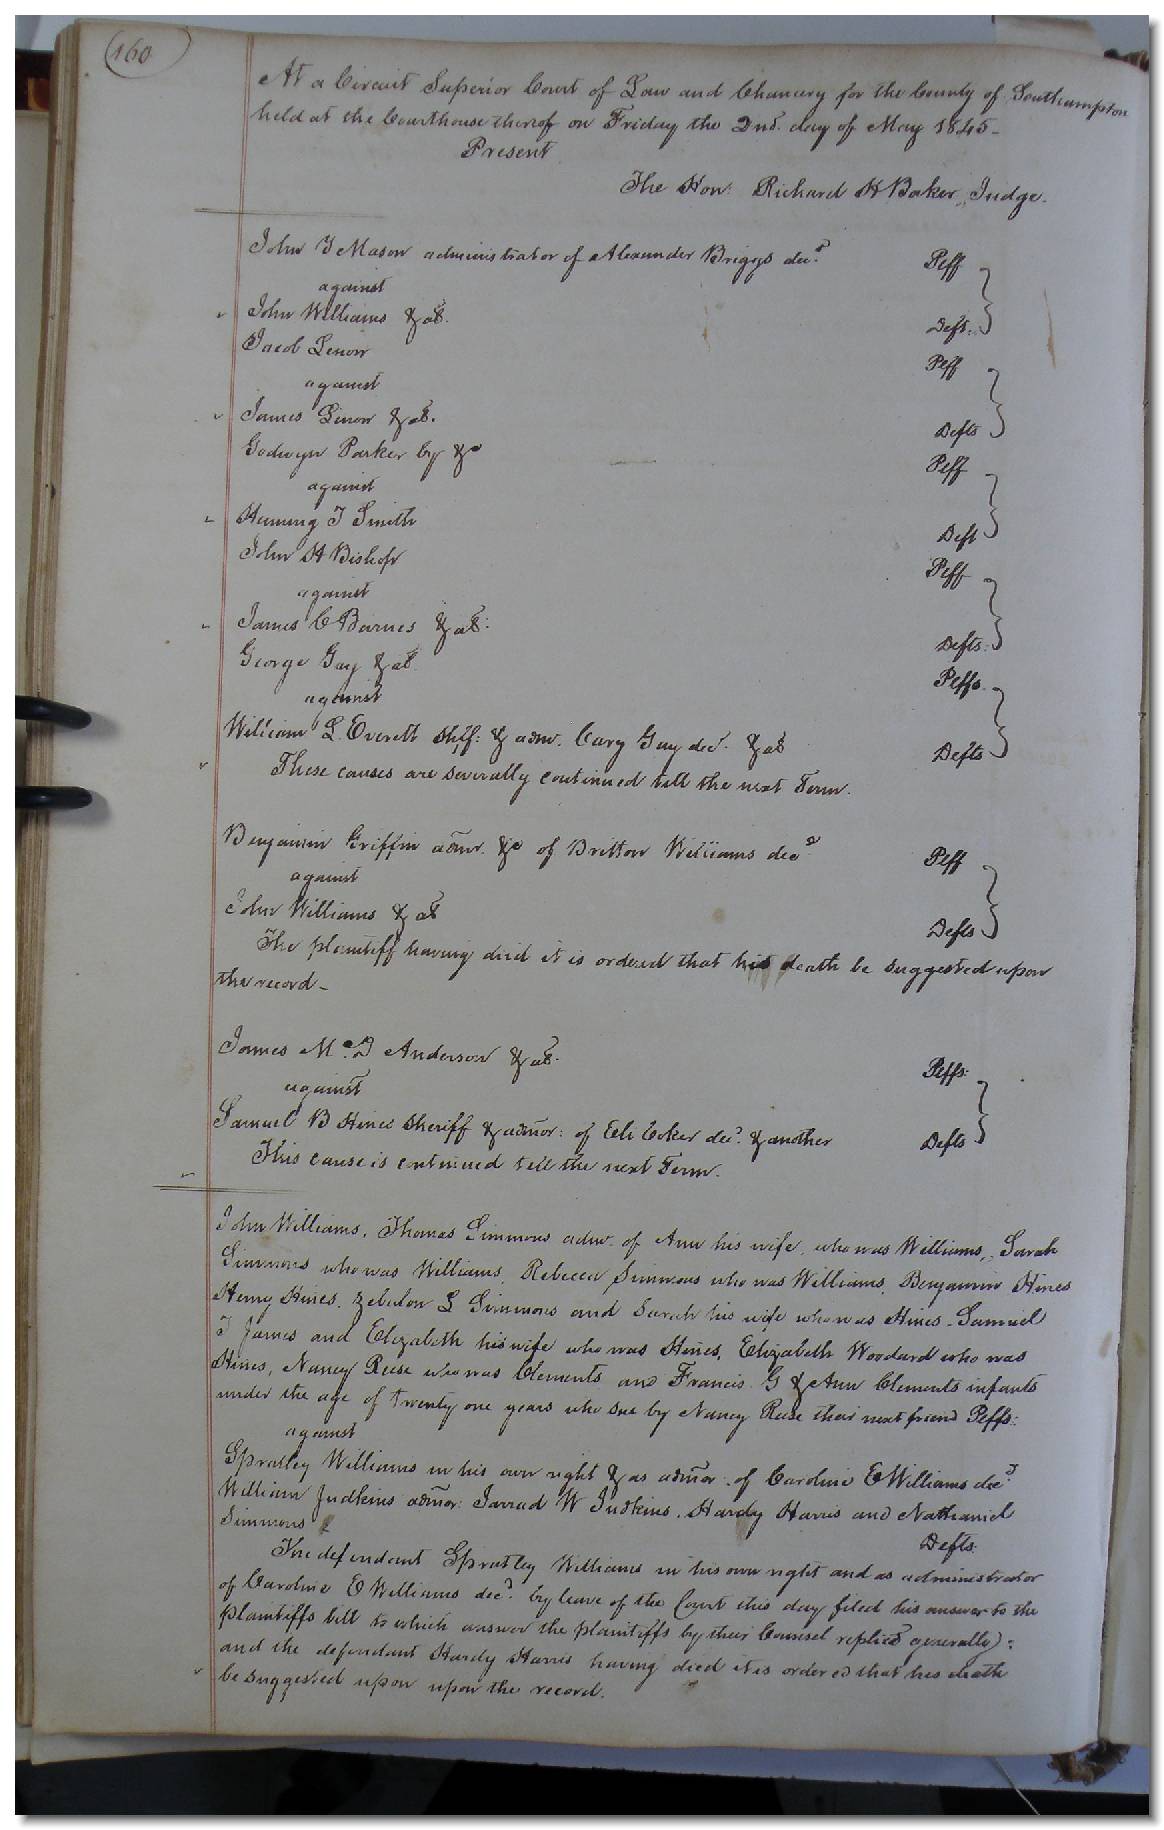 160
At a Circuit Superior Court of Law and Chancery for the County of Southampton
held at the Courthouse thereof on Friday the 2nd. day of May 1845-
Present
The Hon: Richard H Baker, Judge.
John Y Mason administrator of Alexander Briggs decd. Plff
against
John Williams & als. Defts.
Jacob Lenow Plff
against
James Lenow & als. Defts
Godwyn Parker by &c Plff
against
Henning T Smith Deft
John H Bishop Plff
against
James C Barnes & als: Defts:
George Gay & als. Plffs.
against
William L. Everett shff: & admr. Cary Gay decd. & als Defts
These causes are severally continued till the next Term.
Benjamin Griffin admr. &c of Britton Williams decd Plff
against
John Williams & als Defts
The plaintiff having died it is ordered that his death be suggested upon
the record-
James McD Anderson & als. Plffs:
against
Samuel B Hines Sheriff & admor: of Eli Coker decd. & another Defts
This cause is continued till the next Term.
John Williams, Thomas Simmons admr. of Ann his wife, who was Williams, Sarah
Simmons who was Williams, Rebecca Simmons who was Williams, Benjamin Hines
Henry Hines, Zebulon L Simmons and Sarah his wife who was Hines, Samuel
T James and Elizabeth his wife who was Hines, Elizabeth Woodard who was
Hines, Nancy Reese who was Clements and Francis G & Ann Clements infants
under the age of twenty one years who sue by Nancy Reese their next friend Plffs:
against
Spratley Williams in his own right & as admor. of Caroline E Williams decd
William Judkins admor: Jarrad W Judkins, Hardy Harris and Nathaniel
Simmons Defts.
The defendant Spratley Williams in his own right and as administrator
of Caroline E Williams decd. by leave of the Court this day filed his answer to the
plaintiffs bill to which answer the plaintiffs by their Counsel replied generally:
and the defendant Hardy Harris having died it is ordered that his death
be suggested upon upon the record.